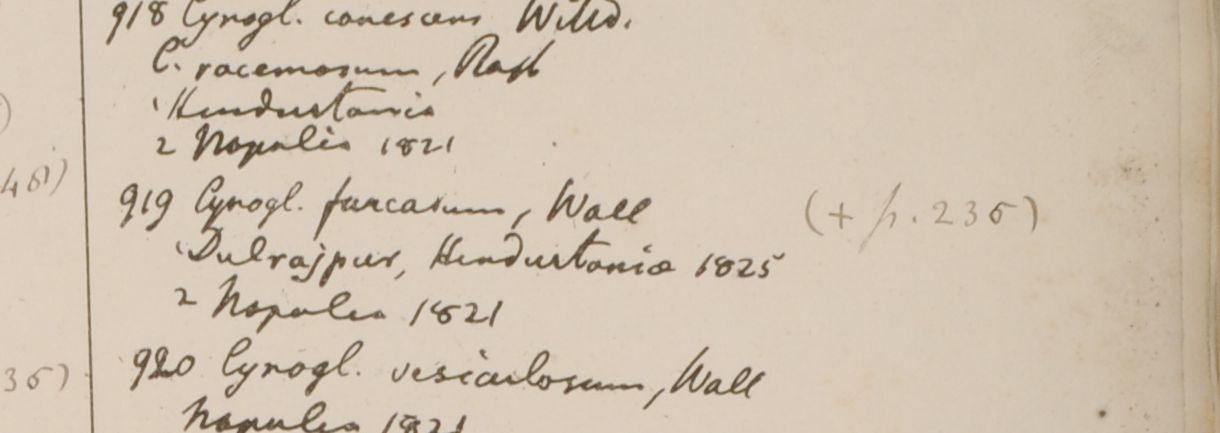 918 Cynogl. canescens Willd.
C. racemosum, Roxb
1 Hindustania
2 Napalia 1821
919 Cynogl. furcatum, Wall (+ p. 236)
1 Dulrajpur, Hindustaniæ 1825
2 Napalia 1821
920 Cynogl. vesiculosum, Wall
36)
Napalia 1821